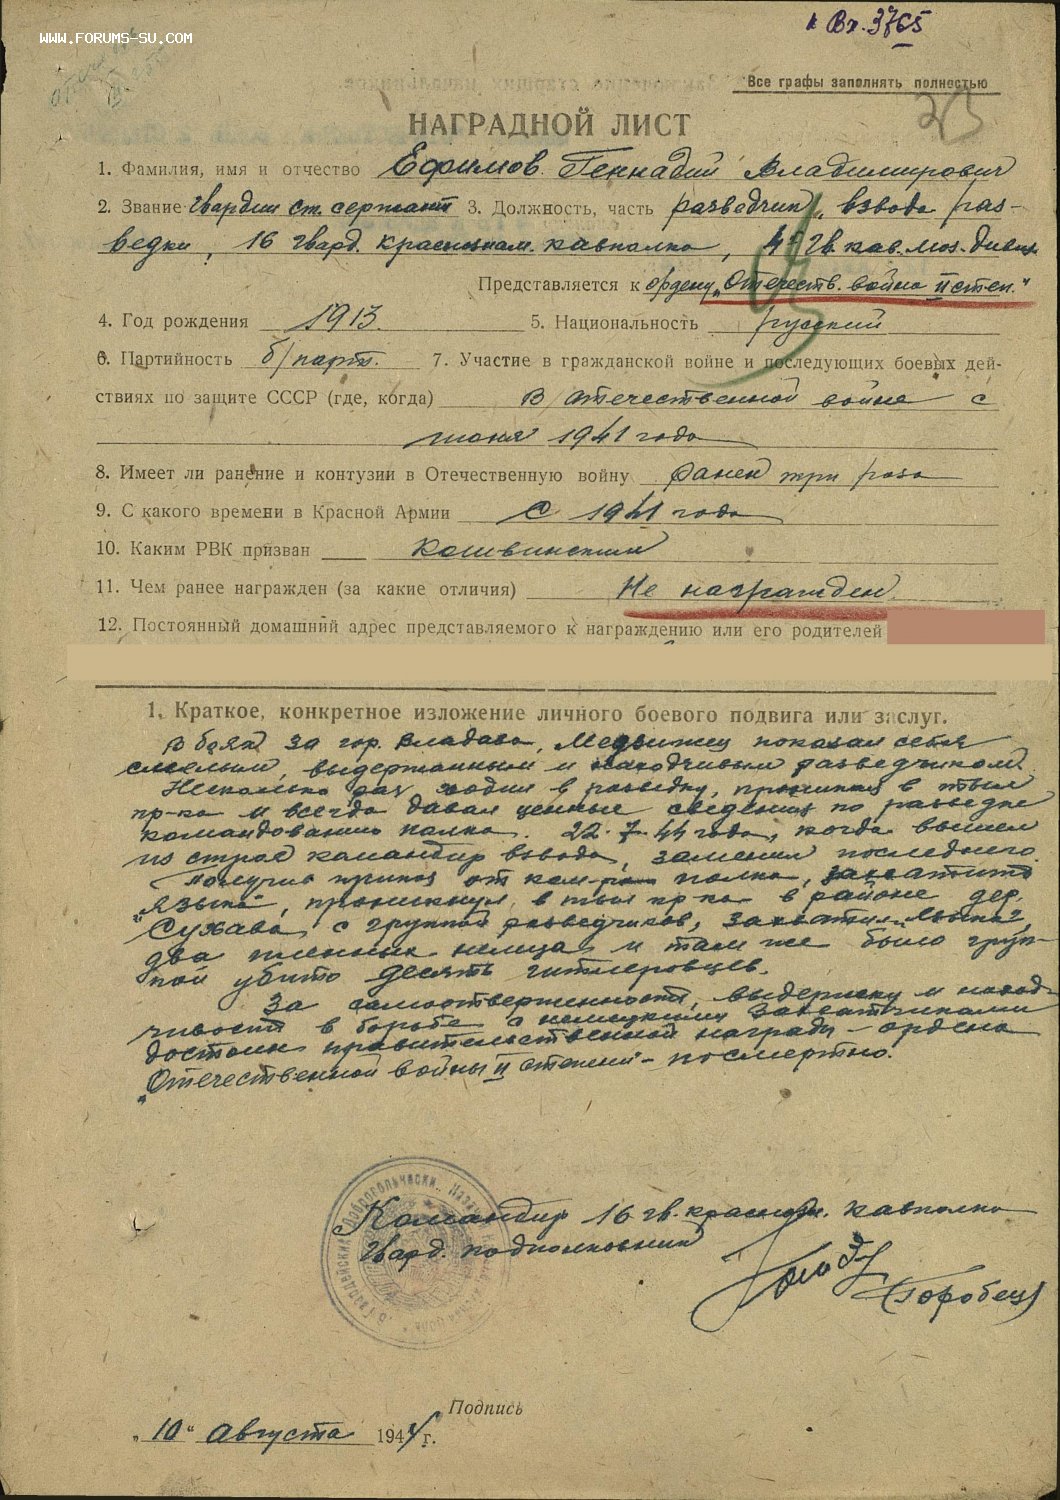 WWW.FORUMS-SU.COM
Вх. 3765
Все графы заполнять полностью
НАГРАДНОЙ ЛИСТ
1. Фамилия, имя и отчество Ефимов Геннадий Владимирович
2. Звание Гвардии ст. сержант 3. Должность, часть разведчик взвода раз-
ведки, 16 гвард. краснознам. кавполка, 4 гв. кав. дивиз.
Представляется к ордену „Отечеств. война II степ."
4. Год рождения 1913. 5. Национальность русский
6. Партийность б/парт. 7. Участие в гражданской войне и последующих боевых дей-
ствиях по защите СССР (где, когда) В отечественной войне с
июня 1941 года
8. Имеет ли ранение и контузии в Отечественную войну Ранен три раза
9. С какого времени в Красной Армии С 1941 года
10. Каким РВК призван
11. Чем ранее награжден (за какие отличия) Не награжден
12. Постоянный домашний адрес представляемого к награждению или его родителей
1. Краткое, конкретное изложение личного боевого подвига или заслуг.
В боях за гор. Владава, показал себя
смелым, выдержанным и находчивым разведчиком.
Несколько раз ходил в разведку, проникал в тыл
пр-ка и всегда давал ценные сведения по разведке
командованию полка. 22.7.44 года, когда вышел
из строя командир взвода, заменил последнего.
Получив приказ от ком-ра полка, захватить
„языка", проникнул в тыл пр-ка в районе дер.
с группой разведчиков, захватил
два пленных немца и там же было груп-
пой убито десять гитлеровцев.
За самоотверженность, выдержку и наход-
чивость в борьбе с немецкими захватчиками
достоин правительственной награды – ордена
„Отечественной войны II степени" – посмертно.
Командир 16 гв. краснозн. кавполка
Гвард. подполковник
(Горобец)
Подпись
„10" августа 1944 г.